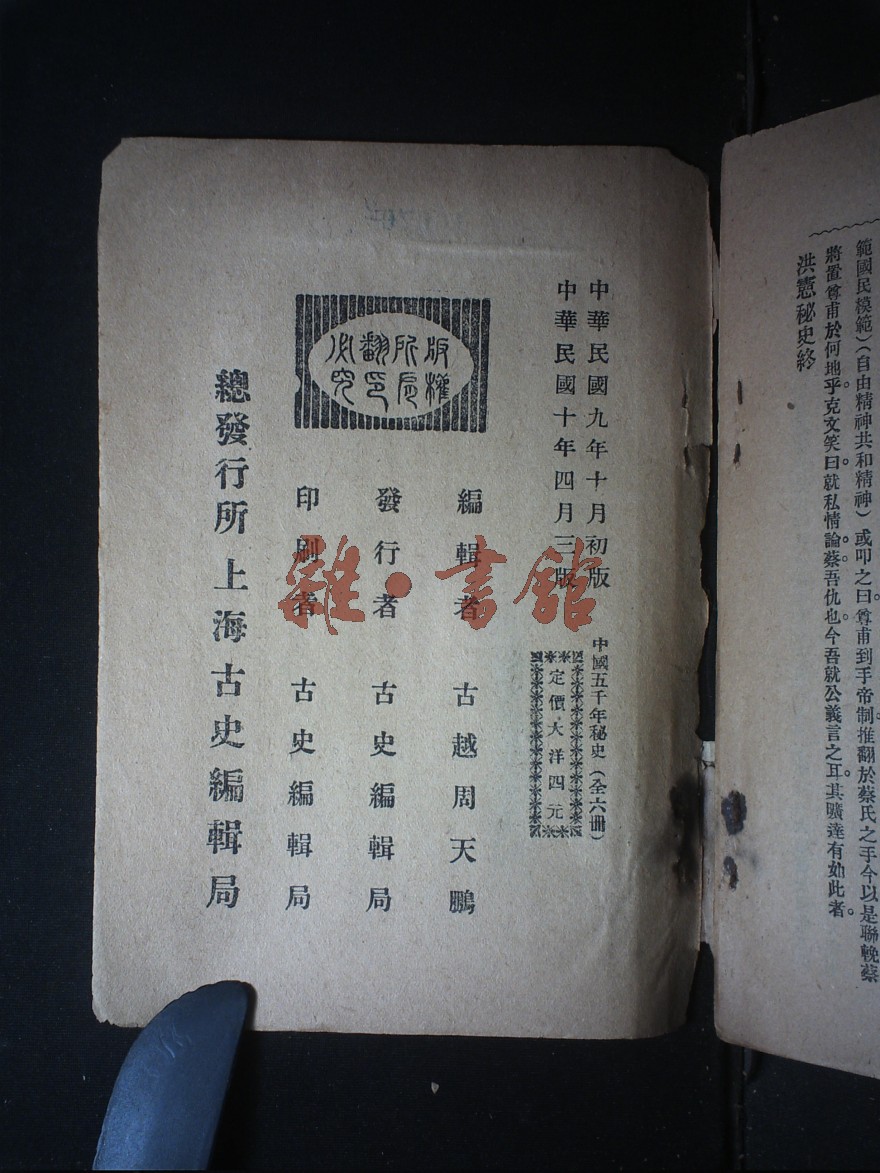 範國民模範）（自由精神共和精神）或叩之曰。尊甫到手帝制。推翻於蔡氏之手。今以是聯輓蔡
將置尊甫於何地乎。克文笑曰。就私情論。蔡吾仇也。今吾就公義言之耳。其曠達有如此者。
洪憲秘史終
中華民國九年十月初版
中華民國十年四月三版
中國五千年秘史（全六冊）
定價大洋四元
編輯者 古越周天鵬
發行者 古史編輯局
印刷者 古史編輯局
版權所有翻印必究
總發行所 上海古史編輯局
雜·書館